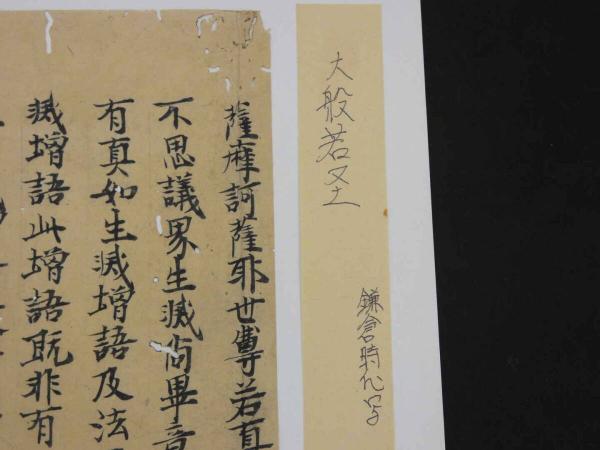 大般若圣
鎌倉時代写
薩摩訶薩耶世尊若真
不思議界生滅尚畢竟
有真如生滅增語及法
滅增語此增語既非有